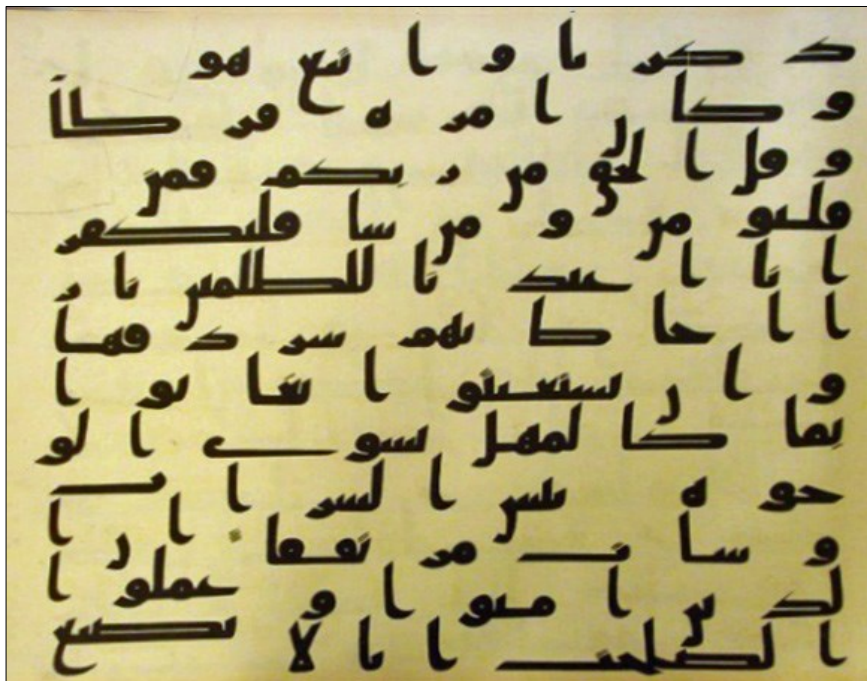 ذكرنا واتبع هو
وكان امره فرطا
وقل الحق من ربكم فمن
فليومن ومن شا فليكفر
انا اعتدنا للظلمين نار
ا احاط بهم سردقها
وان يستغيثوا يغاثوا
بما كالمهل يشوي الو
جوه بئس الشراب
وسات مرتفقا ان ا
لذين امنوا وعملوا
الصلحت انا لا نضيع